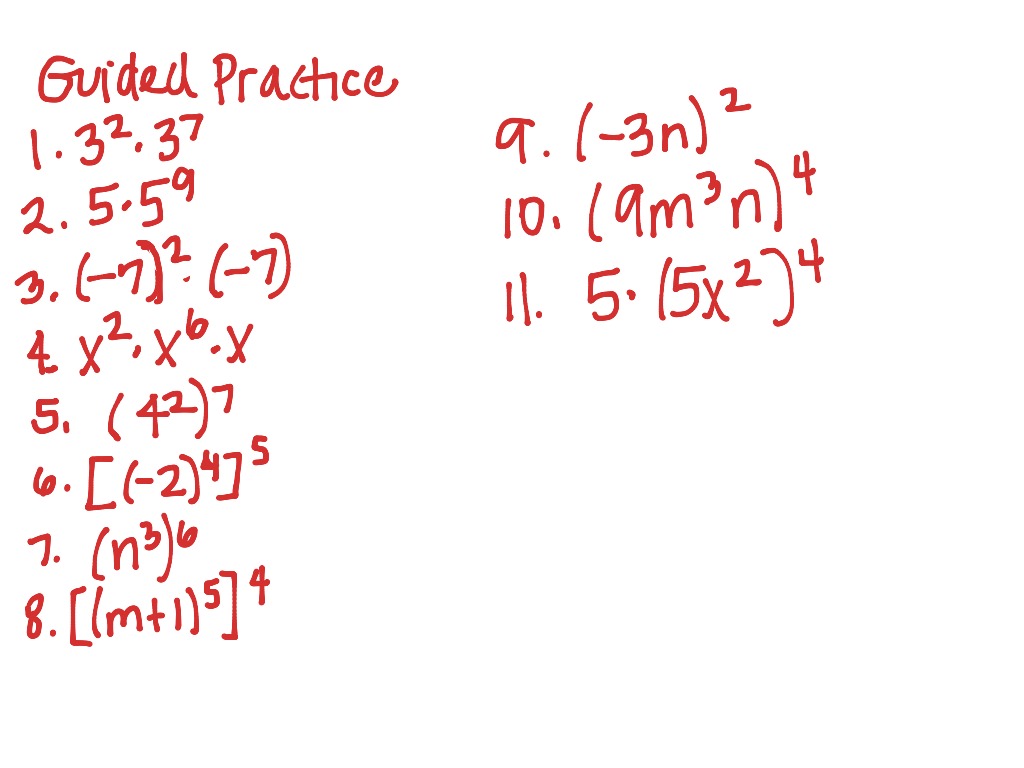 Guided Practice
1. 3² · 3⁷
2. 5 · 5⁹
3. (-7)² · (-7)
4. x² · x⁶ · x
5. (4²)⁷
6. [(-2)⁴]⁵
7. (n³)⁶
8. [(m+1)⁵]⁴
9. (-3n)²
10. (9m³n)⁴
11. 5 · (5x²)⁴